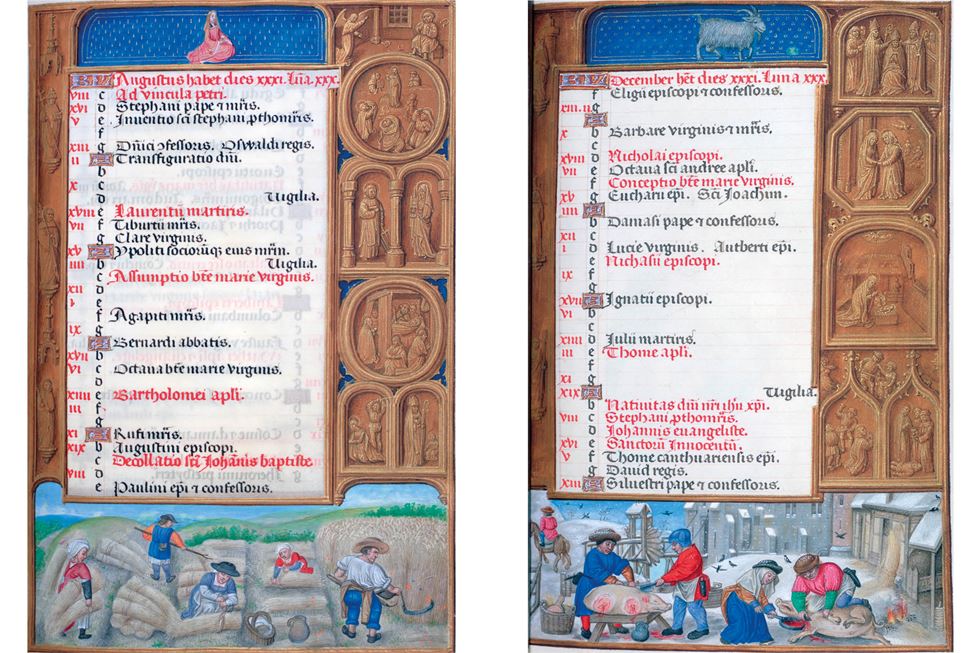 KL Augustus habet dies xxxi. Lūa xxx.
viii c Ad vincula petri.
xvi d Stephani pape ⁊ mr̄is.
v e Inuentio scī stephani, p̄thomr̄is.
f
xiii g Dn̄ici ɔfessoris. Oswaldi regis.
ii Transfiguratio dn̄i.
b
x c
d Uigilia.
xviii e Laurentii martiris.
vii f Tiburtii mr̄is.
g Clare virginis.
xv Ypoliti socioruq̄ eius mr̄m.
iiii b Uigilia.
c Assumptio bt̄e marie virginis.
xii d
i e
f Agapiti mr̄is.
ix g
Bernardi abbatis.
xvii b
vi c Octaua bt̄e marie virginis.
d
xiiii e Bartholomei apl̄i.
iii f
g
xi Rufi mr̄is.
xix b Augustini episcopi.
c Decollatio scī Johānis baptiste.
viii d
e Paulini ep̄i ⁊ confessoris.
KL December hēt dies xxxi. Luna xxx.
f Eligii episcopi ⁊ confessoris.
xiii. ii. g
x b Barbare virginis ⁊ mr̄is.
c
xviii d Nicholai episcopi.
vii e Octaua scī andree apl̄i.
f Conceptio bt̄e marie virginis.
xv g Eucharii ep̄i. Scī Joachim.
iiii
b Damasi pape ⁊ confessoris.
xii c
i d Lucie virginis. Autberti ep̄i.
e Nichasii episcopi.
ix f
g
xvii Ignatii episcopi.
vi b
c
xiiii d Julii martiris.
iii e Thome apl̄i.
f
xi g
xix Uigilia.
b Natiuitas dn̄i nr̄i ih̄u xp̄i.
viii c Stephani p̄thomr̄is.
d Johannis euangeliste.
xvi e Sanctorū Innocentū.
v f Thome cantuariensis ep̄i.
g Dauid regis.
xiii Siluestri pape ⁊ confessoris.